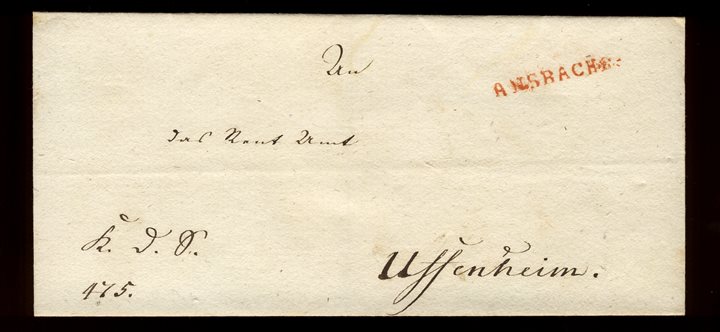 An
ANSBACH.
das Rent Amt
K. D. S.
475.
Uffenheim.